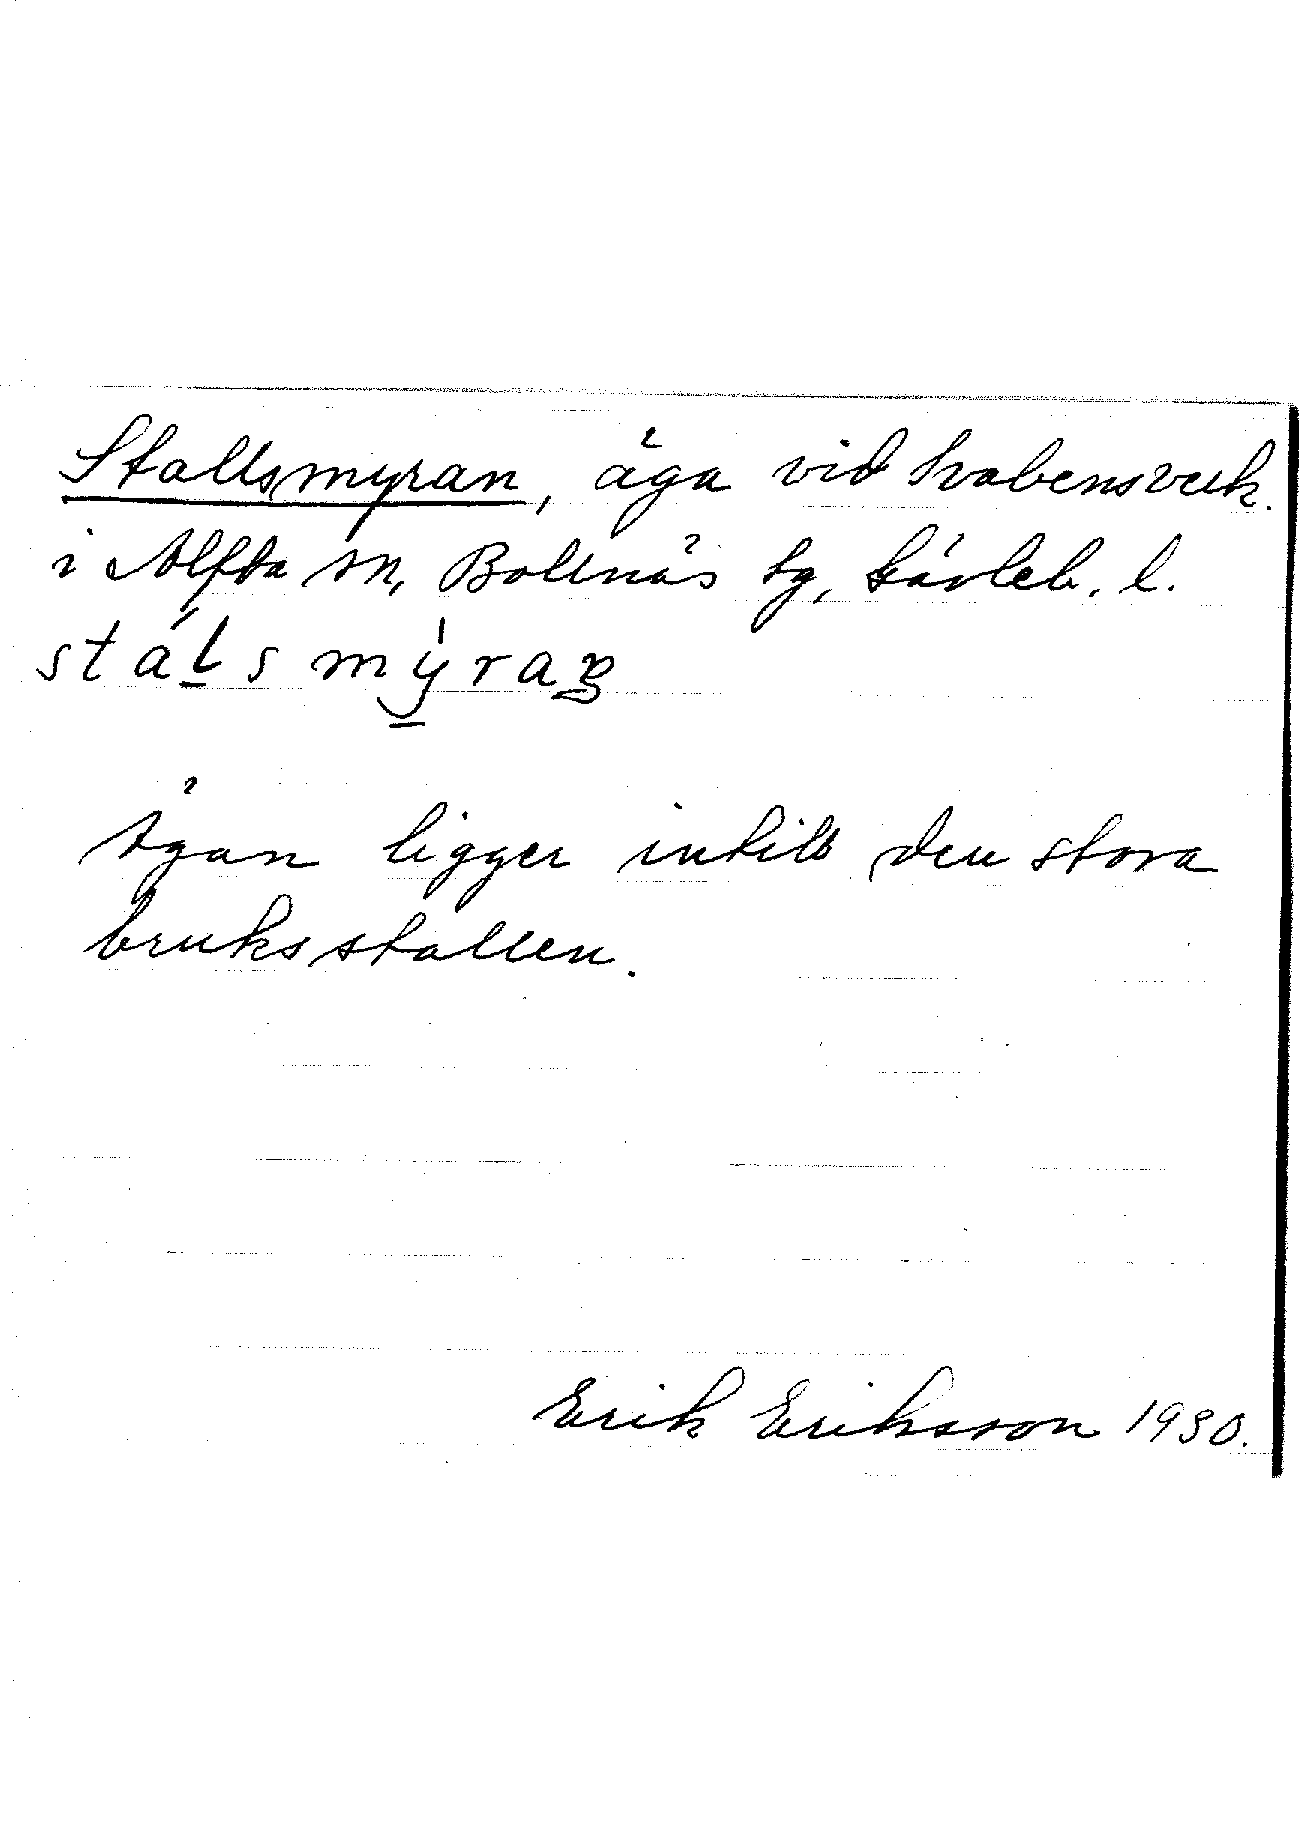 Stallsmyran, äga vid Svabensverk.
i Alfta sn, Bollnäs tg, Gävleb. l.
stáḷsmỳraṉ
Ägan ligger intill den stora
bruksstallen.
Erik Eriksson 1930.